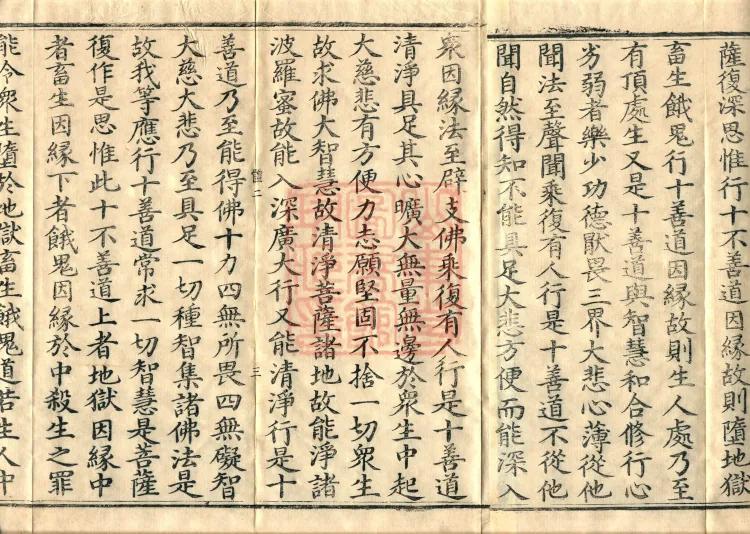 薩復深思惟行十不善道因緣故則墮地獄
畜生餓鬼行十善道因緣故則生人處乃至
有頂處生又是十善道與智慧和合修行心
劣弱者樂少功德猒畏三界大悲心薄從他
聞法至聲聞乘復有人行是十善道不從他
聞自然得知不能具足大悲方便而能深入
衆因緣法至辟支佛乘復有人行是十善道
清淨具足其心曠大無量無邊於衆生中起
大慈悲有方便力志願堅固不捨一切衆生
故求佛大智慧故清淨菩薩諸地故能淨諸
波羅蜜故能入深廣大行又能清淨行是十
三
善道乃至能得佛十力四無所畏四無礙智
大慈大悲乃至具足一切種智集諸佛法是
故我等應行十善道常求一切智慧是菩薩
復作是思惟此十不善道上者地獄因緣中
者畜生因緣下者餓鬼因緣於中殺生之罪
能令衆生墮於地獄畜生餓鬼道若生人中